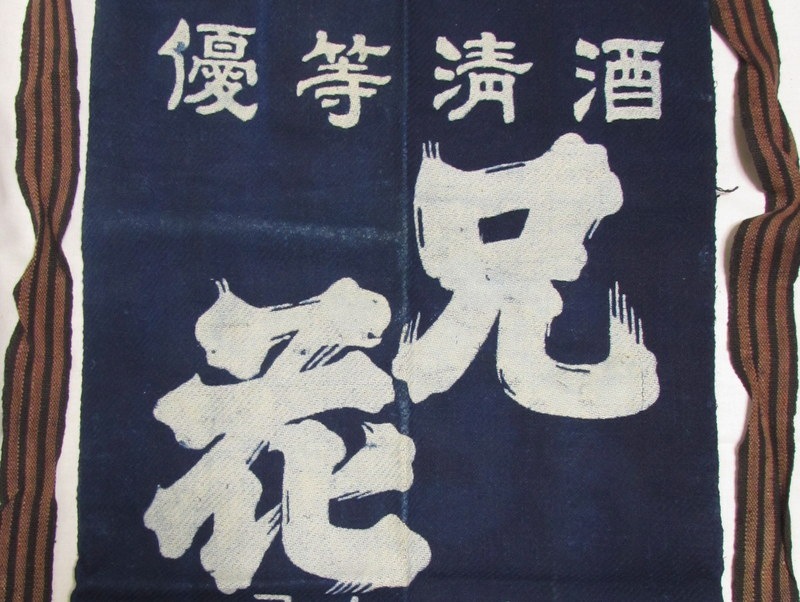 優等清酒
兄花